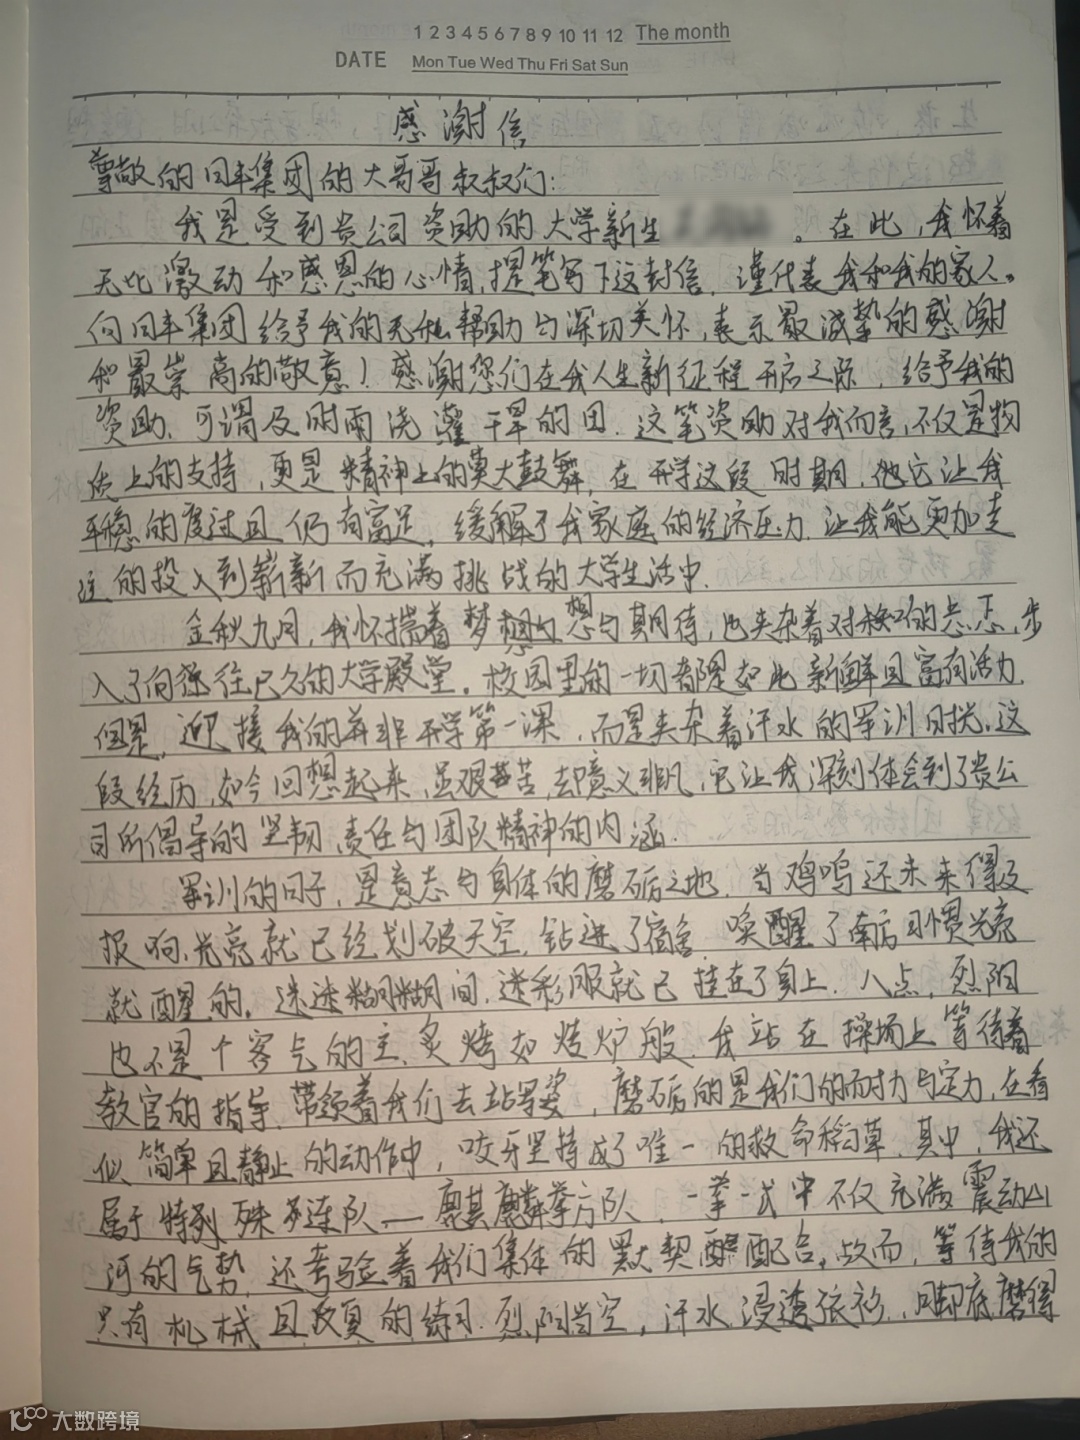 1 2 3 4 5 6 7 8 9 10 11 12 The month
DATE Mon Tue Wed Thu Fri Sat Sun
感谢信
尊敬的日丰集团的大哥哥叔叔们:
我是受到贵公司资助的大学新生 。在此,我怀着
无比激动和感恩的心情,提笔写下这封信,谨代表我和我的家人。
向日丰集团给予我的无私帮助与深切关怀,表示最诚挚的感谢
和最崇高的敬意!感谢您们在我人生新征程开启之际,给予我的
资助,可谓及时雨浇灌干旱的田.这笔资助对我而言,不仅是物
质上的支持,更是精神上的莫大鼓舞,在开学这段时期,他它让我
平稳的度过且仍有富足,缓解了我家庭的经济压力,让我能更加专
注的投入到崭新而充满挑战的大学生活中.
金秋九月,我怀揣着梦想与期待,也夹杂着对未知的忐忑,步
入了向往已久的大学殿堂。校园里的一切都是如此新鲜且富有活力,
但是,迎接我的并非开学第一课,而是夹杂着汗水的军训日常.这
段经历,如今回想起来,虽艰苦,却意义非凡,它让我深刻体会到了贵公
司所倡导的坚韧,责任与团队精神的内涵.
军训的日子,是意志与身体的磨砺之地,当鸡鸣还未来得及
报响,光亮就已经划破天空,钻进了宿舍,唤醒了南后习惯光亮
就醒的,迷迷糊糊间,迷彩服就已挂在了身上.八点,烈阳
也不是个客气的主,炙烤如烤炉般,我站在操场上等待着
教官的指导,带领着我们去站军姿,磨砺的是我们的耐力与定力,在看
似简单且静止的动作中,咬牙坚持成了唯一的救命稻草.其中,我还
属于特殊连队——麒麟拳方队,一拳一式中不仅充满震动山
河的气势,还考验着我们集体的默契配合。故而,等待我的
只有机械且反复的练习.烈阳当空,汗水浸透依衫,回却底磨得
大数跨境